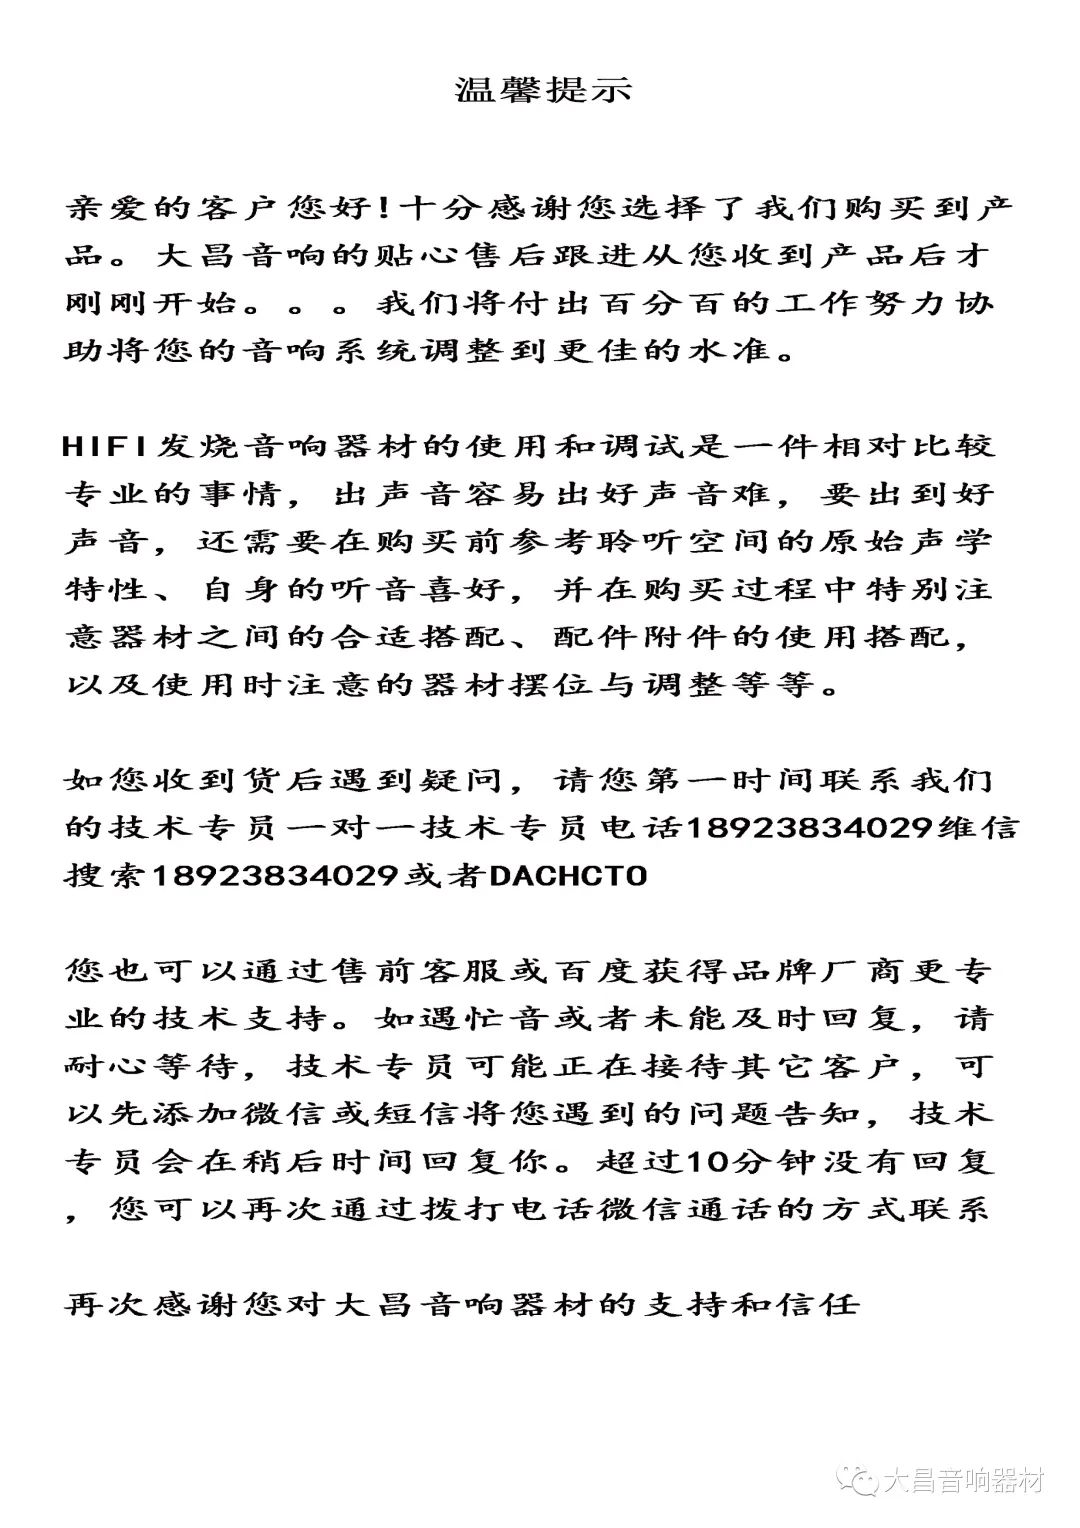 温馨提示
亲爱的客户您好!十分感谢您选择了我们购买到产
品。大昌音响的贴心售后跟进从您收到产品后才
刚刚开始。。。我们将付出百分百的工作努力协
助将您的音响系统调整到更佳的水准。
HIFI发烧音响器材的使用和调试是一件相对比较
专业的事情，出声音容易出好声音难，要出到好
声音，还需要在购买前参考聆听空间的原始声学
特性、自身的听音喜好，并在购买过程中特别注
意器材之间的合适搭配、配件附件的使用搭配，
以及使用时注意的器材摆位与调整等等。
如您收到货后遇到疑问，请您第一时间联系我们
的技术专员一对一技术专员电话18923834029维信
搜索18923834029或者DACHCTO
您也可以通过售前客服或百度获得品牌厂商更专
业的技术支持。如遇忙音或者未能及时回复，请
耐心等待，技术专员可能正在接待其它客户，可
以先添加微信或短信将您遇到的问题告知，技术
专员会在稍后时间回复你。超过10分钟没有回复
，您可以再次通过拨打电话微信通话的方式联系
再次感谢您对大昌音响器材的支持和信任
大昌音响器材